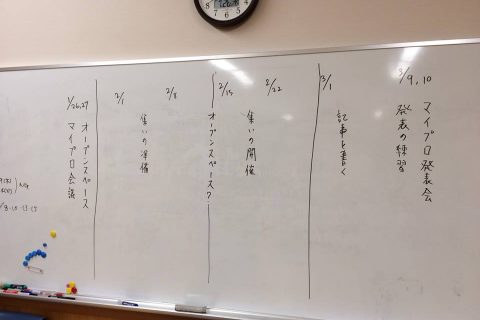 1/26,27
オープンスペース
マイプロ会議
2/1
集いの準備
2/8
2/15
オープンスペース?
2/22
集いの開催
3/1
記事を書く
3/9,10
マイプロ発表会
発表の練習